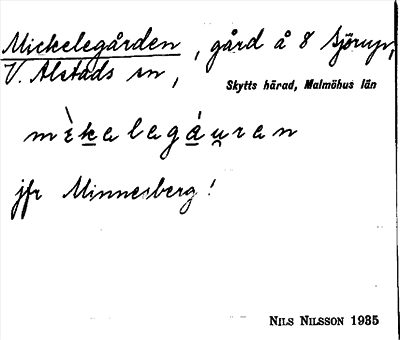 Mickelegården, gård å 8 Sjörup,
V. Alstads sn,
Skytts härad, Malmöhus län
mìkalegáuran
jfr Minnesberg!
NILS NILSSON 1935